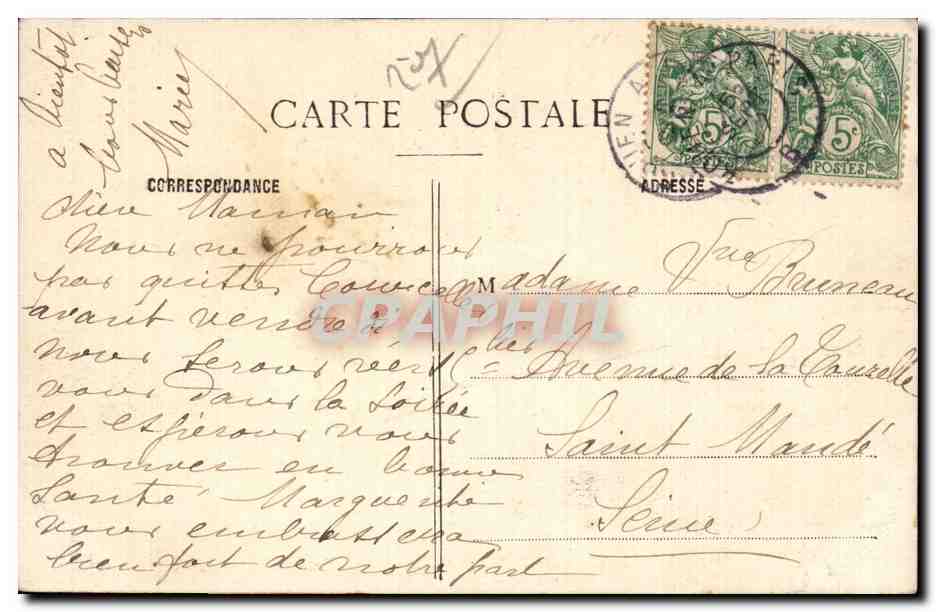 à bientôt
bons baisers
Marie
207
CARTE POSTALE
CORRESPONDANCE
ADRESSE
5c
POSTES
5c
POSTES
PARIS
chère Maman
Nous ne pourrons
pas quitter Courcelles
avant vendredi
nous serons vers
vous dans la soirée
et espérons vous
trouver en bonne
santé Marguerite
vous embrassera
bien fort de notre part
Madame Vve Bruneau
Avenue de la Tourelle
Saint Mandé
Seine
CPAPHIL